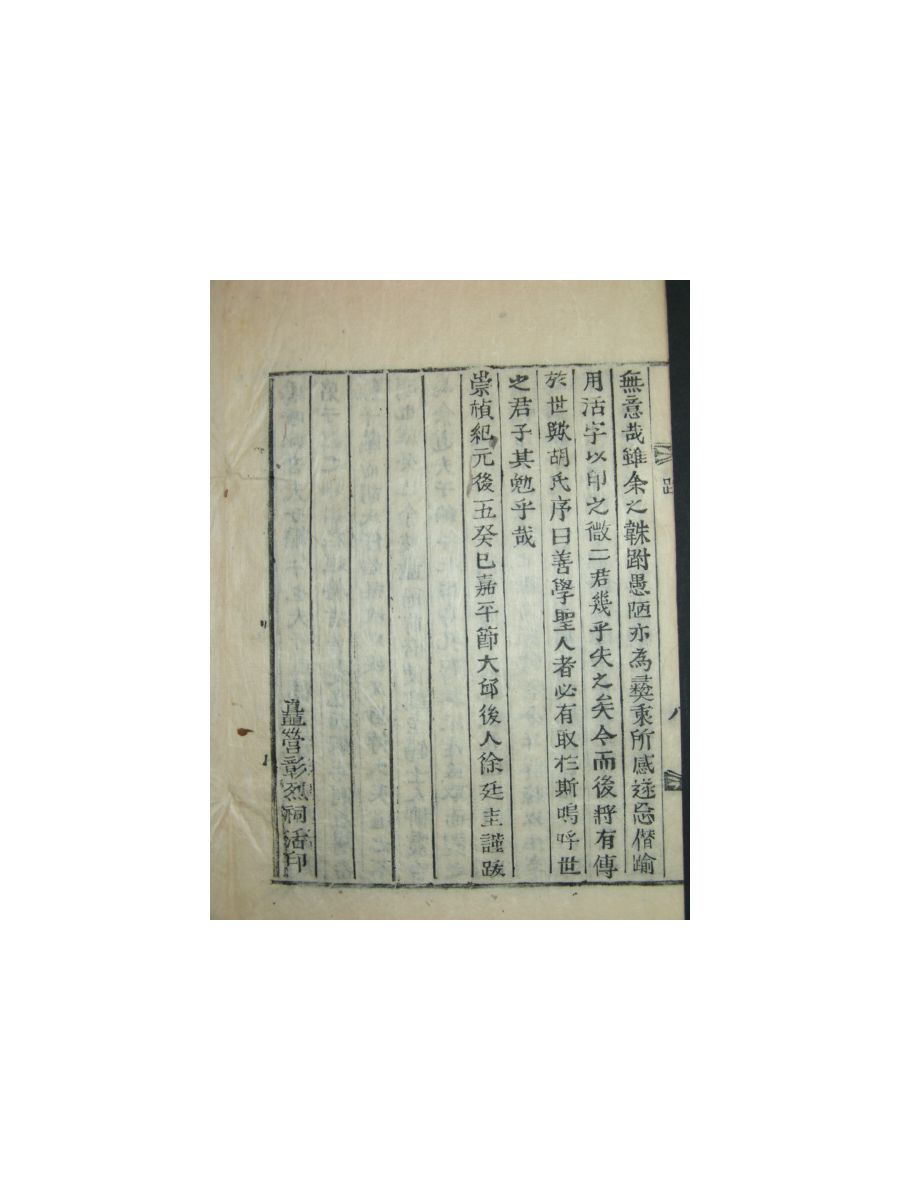 無意哉雖余之韎跗愚陋亦為彛秉所感遂忘僣踰
用活字以印之微二君幾乎失之矣今而後將有傳
於世歟胡氏序曰善學聖人者必有取於斯嗚呼世
之君子其勉乎哉
崇禎紀元後五癸巳嘉平節大邱後人徐廷圭謹跋
矗營彰烈祠活印
跋
八